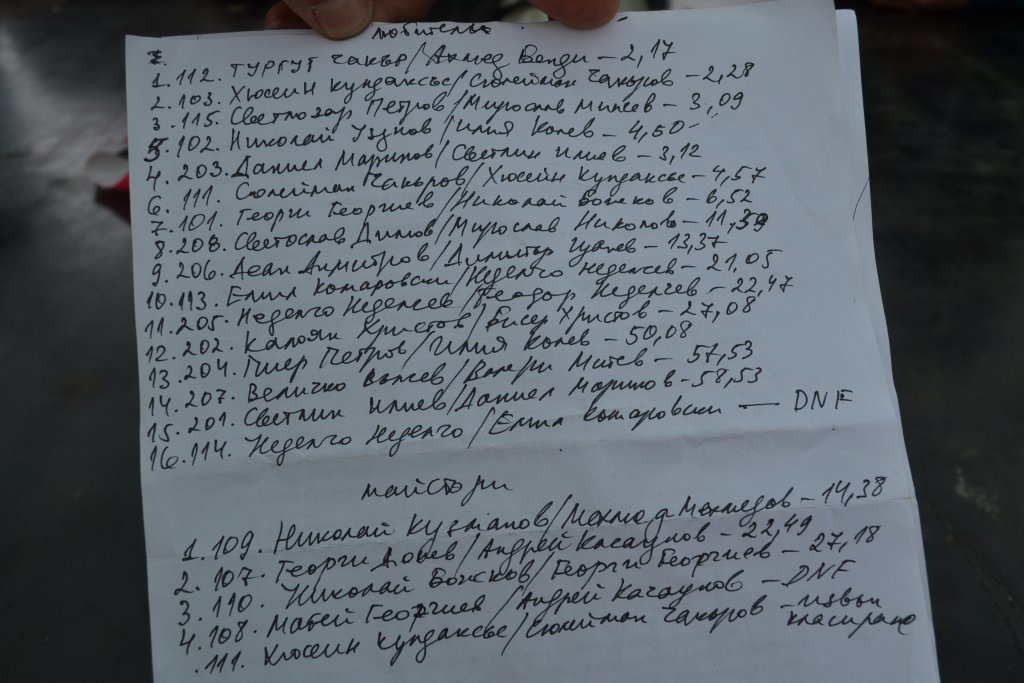 любители
1. 112. ТУРГУТ Чакър/Ахмед Венди - 2,17
2. 103. Хюсеин Кундаксъе/Сюлейман Чакъров - 2,28
3. 115. Светлозар Петров/Мирослав Милев - 3,09
5. 102. Николай Узунов/Илия Колев - 4,50
4. 203. Даниел Маринов/Светлин Илиев - 3,12
6. 111. Сюлейман Чакъров/Хюсеин Кундаксъе - 4,57
7. 101. Георги Георгиев/Николай Божков - 6,52
8. 208. Светослав Димов/Мирослав Николов - 11,39
9. 206. Деан Димитров/Димитър Цачев - 13,37
10. 113. Емил Комаровски/Неделчо Неделчев - 21,05
11. 205. Неделчо Неделчев/Теодор Неделчев - 22,47
12. 202. Калоян Христов/Бисер Христов - 27,08
13. 204. Питер Петров/Илия Колев - 50,08
14. 207. Величко Вълчев/Валери Митев - 57,53
15. 201. Светлин Илиев/Даниел Маринов - 58,53
16. 114. Неделчо Неделчо/Емил Комаровски — DNF
майстори
1. 109. Николай Кузманов/Мехмед Мехмедов - 14,38
2. 107. Георги Донев/Андрей Касабунов - 22,49
3. 110. Николай Божков/Георги Георгиев - 27,18
4. 108. Матей Георгиев /Андрей - DNF
. 111. Хюсеин Кундаксъе/Сюлейман Чакъров - извън
класиране